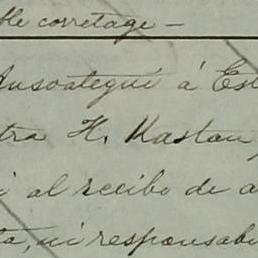 ble corretage —
Ansoategui á Est
tra H. Kastan,
i al recibo de a
ta, ni responsabi